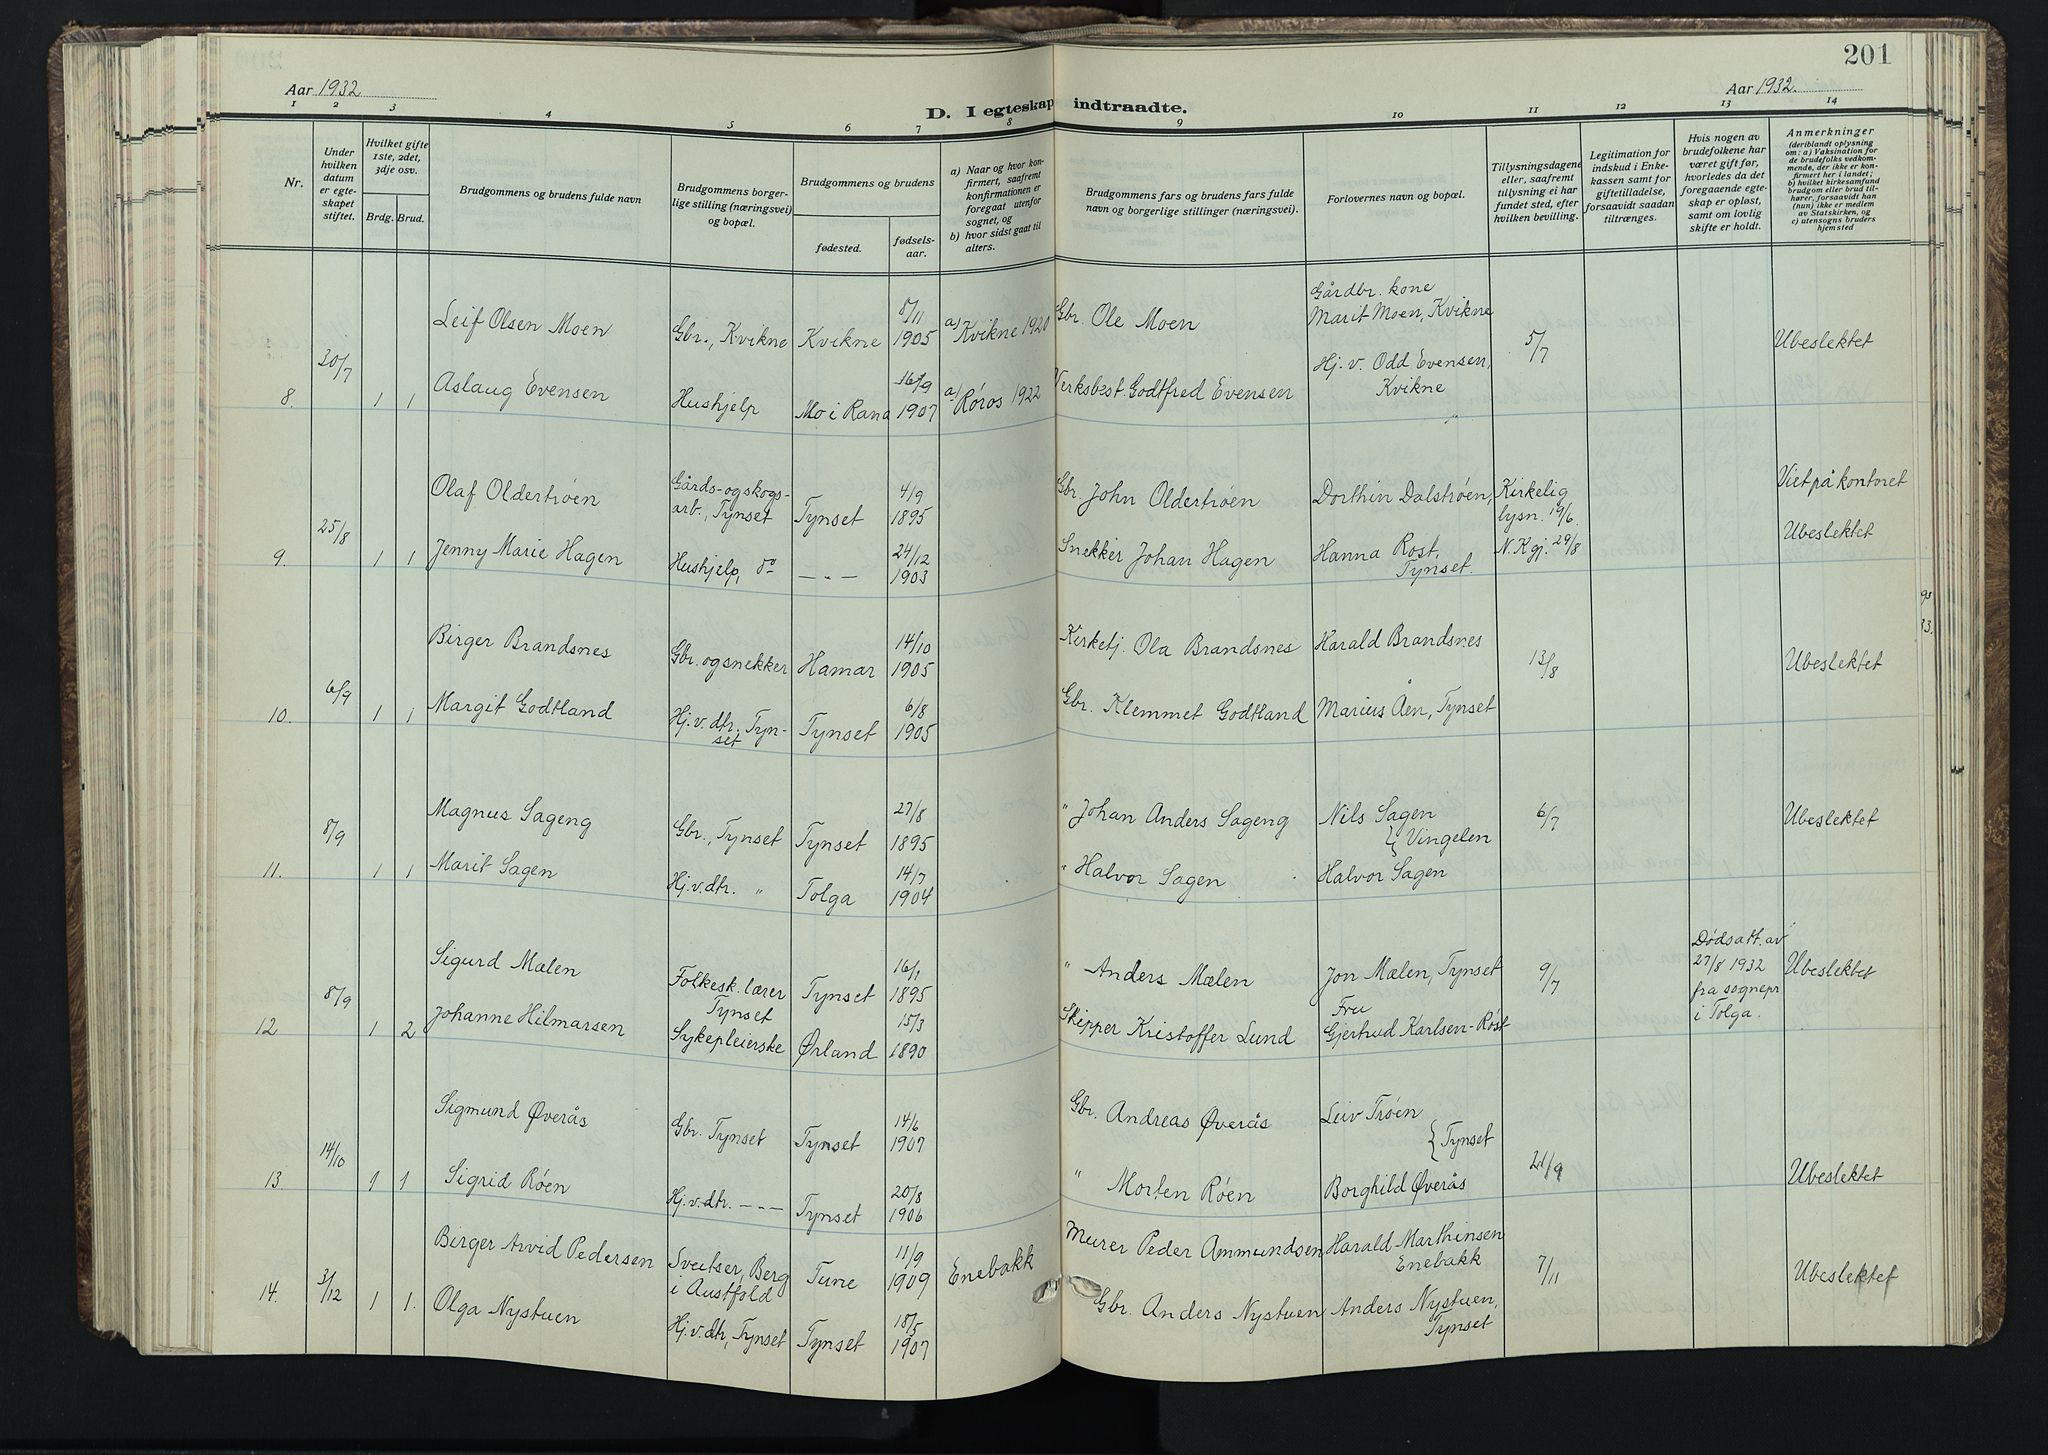 201
Aar 1932
Aar 1932.
D. I egteskap indtraadte.
1 2 3 4 5 6 7 8 9 10 11 12 13 14
Nr.
Under hvilken datum er egteskapet stiftet.
Hvilket gifte 1ste, 2det, 3dje osv.
Brdg. Brud.
Brudgommens og brudens fulde navn
Brudgommens borgerlige stilling (næringsvei) og bopæl.
Brudgommens og brudens
fødested.
fødselsaar.
a) Naar og hvor konfirmert, saafremt konfirmationen er foregaat utenfor sognet, og
b) hvor sidst gaat til alters.
Brudgommens fars og brudens fars fulde navn og borgerlige stillinger (næringsvei).
Forlovernes navn og bopæl.
Tillysningsdagene eller, saafremt tillysning ei har fundet sted, efter hvilken bevilling.
Legitimation for indskud i Enkekassen samt for giftetilladelse, forsaavidt saadan tiltrænges.
Hvis nogen av brudefolkene har været gift før, hvorledes da det foregaaende egteskap er opløst, samt om lovlig skifte er holdt.
Anmerkninger
(deriblandt oplysning om: a) Vaksination for de brudefolks vedkommende, der ikke er konfirmert her i landet; b) hvilket kirkesamfund brudgom eller brud tilhører, forsaavidt han (hun) ikke er medlem av Statskirken, og c) utensogns bruders hjemsted
8. 30/7 1 1
Leif Olsen Moen
Gbr., Kvikne Kvikne 8/11 1905 a) Kvikne 1920
Gbr. Ole Moen
Gårdbr. kone
Marit Moen, Kvikne
5/7
Ubeslektet
Aslaug Evensen
Hushjelp Mo i Rana 16/9 1907 a) Røros 1922
Verksbest. Godtfred Evensen
Hj. v. Odd Evensen,
Kvikne
9. 25/8 1 1
Olaf Oldertrøen
Gårds- og skogs-
arb., Tynset Tynset 4/9 1895
Gbr. John Oldertrøen
Dorthin Dalstrøen,
Kirkelig
lysn. 19/6.
N. Kgj. 29/8
Viet på kontoret
Ubeslektet
Jenny Marie Hagen
Hushjelp, do — „ — 24/12 1903
Snekker Johan Hagen
Hanna Rost,
Tynset.
10. 6/9 1 1
Birger Brandsnes
Gbr. og snekker Hamar 14/10 1905
Kirketj. Ola Brandsnes
Harald Brandsnes
13/8
Ubeslektet
Margit Godtland
Hj. v. dtr., Tyn-
set Tynset 6/8 1905
Gbr. Klemmet Godtland
Marius Åen, Tynset
11. 8/9 1 1
Magnus Sageng
Gbr., Tynset Tynset 27/8 1895
" Johan Anders Sageng
Nils Sagen
} Vingelen
6/7
Ubeslektet
Marit Sagen
Hj. v. dtr. " Tolga 14/7 1904
" Halvor Sagen
Halvor Sagen
12 8/9 1 2
Sigurd Mælen
Folkesk. lærer
Tynset Tynset 16/1 1895
" Anders Mælen
Jon Mælen, Tynset
9/7
Dødsatt. av
27/8 1932
fra sognepr
i Tolga.
Ubeslektet
Johanne Hilmarsen
Sykepleierske Ørland 15/3 1890
Skipper Kristoffer Lund
Fru
Gjertrud Karlsen-Røst
13. 14/10 1 1
Sigmund Øverås
Gbr. Tynset Tynset 14/6 1907
Gbr. Andreas Øverås
Leiv Trøen
{ Tynset
21/9
Ubeslektet
Sigrid Røen
Hj. v. dtr. — „ — Tynset 20/8 1906
" Morten Røen
Borghild Øverås
14. 3/12 1 1.
Birger Arvid Pedersen
Sveitser, Berg
i Austfold Tune 11/9 1909 Enebakk
Murer Peder Ammundsen
Harald Marthinsen
Enebakk
7/11
Ubeslektet
Olga Nystuen
Hj. v. dtr, Tynset Tynset 18/5 1907
Gbr. Anders Nystuen
Anders Nystuen,
Tynset